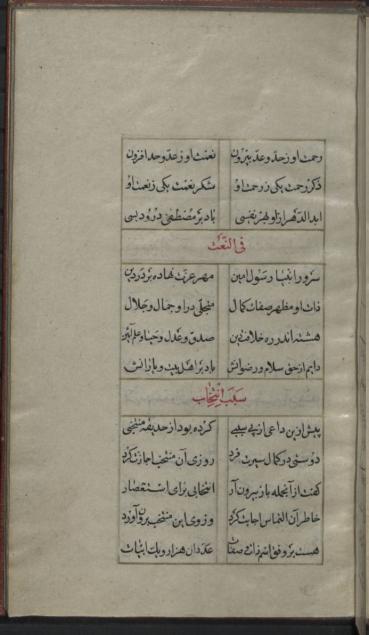 رحمت او ز حد و عد بیرون نعمت او ز عد و حد افزون
ذکر رحمت یکی ز رحمت او شکر نعمت یکی ز نعمت او
ابدالدهر از او بهر نفسی باد بر مصطفی درود بسی
فی النعت
سرور انبیا رسول امین مهر عزت نهاده بر در دین
ذات او مظهر صفات کمال متجلی در او جمال و جلال
هشته اندر ره خلافت دین صدق و عدل و حیا و علم
دایم از حق سلام و رضوانش باد بر اهل بیت و یارانش
سبب انتخاب
پیش ازین داعی از پی سببی کرده بود از حدیقه منتخبی
دوستی در کمال سیرت فرد روزی آن منتخب
گفت از آنجمله باز بیرون آر انتخابی برای استحضار
خاطر آن التماس اجابت کرد وز وی این منتخب برون آورد
هست بر وفق اسم ذات و صفات عدد آن هزار و یک ابیات